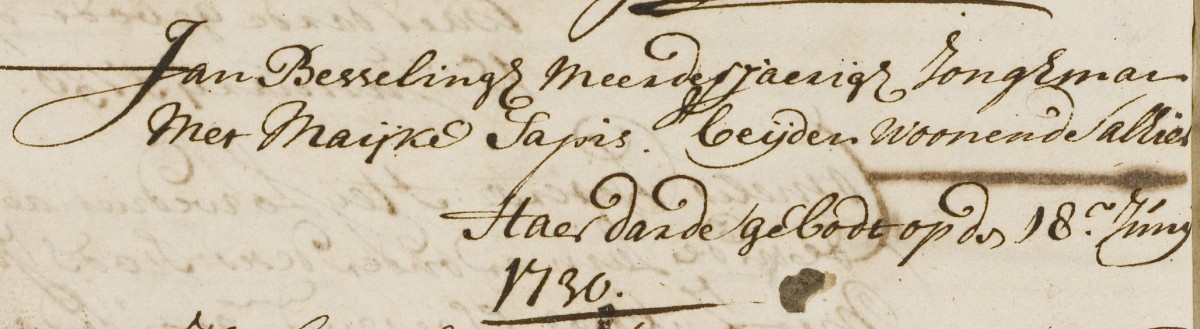 Jan Besselingh Meerderjaerigh Jonghman
Met Maijke Sapis. beijden woonende alhier
Haer darde gebodt op de 18.en Junij
1730.